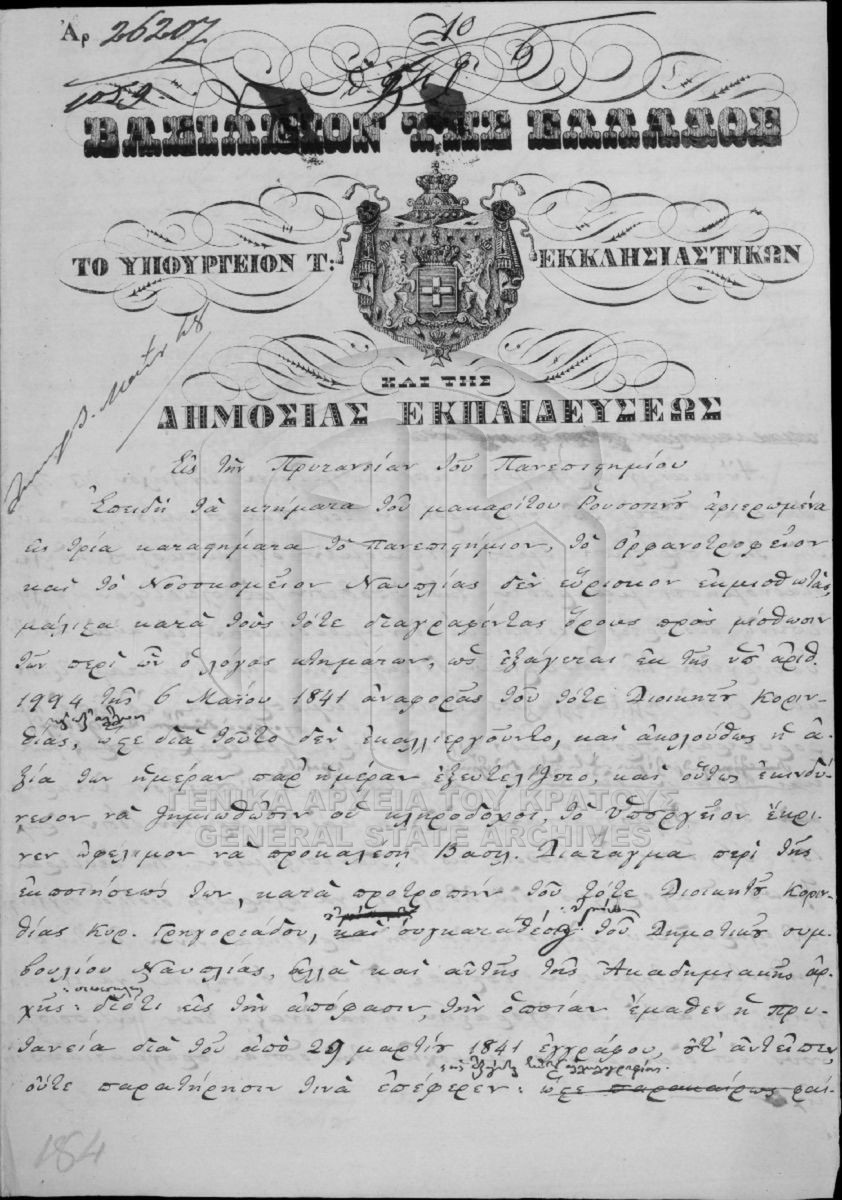 Ἀρ 26207
10
1029.
ΒΑΣΙΛΕΙΟΝ ΤΗΣ ΕΛΛΑΔΟΣ
ΤΟ ΥΠΟΥΡΓΕΙΟΝ Τ: ΕΚΚΛΗΣΙΑΣΤΙΚΩΝ
ΚΑΙ ΤΗΣ
ΔΗΜΟΣΙΑΣ ΕΚΠΑΙΔΕΥΣΕΩΣ
Εἰς τὴν Πρυτανείαν τοῦ Πανεπιστημίου
Ἐπειδὴ τὰ κτήματα τοῦ μακαρίτου ἀφιερωμένα
εἰς τρία καταστήματα τὸ Πανεπιστήμιον, τὸ Ὀρφανοτροφεῖον
καὶ τὸ Νοσοκομεῖον Ναυπλίας δὲν εὕρισκον ἐκμισθωτάς,
μάλιστα κατὰ τοὺς τότε διαγραφέντας ὅρους πρὸς μίσθωσιν
τῶν περὶ ὧν ὁ λόγος κτημάτων, ὡς ἐξάγεται ἐκ τῆς ὑπ' ἀριθ.
1994 τῆς 6 Μαΐου 1841 ἀναφορᾶς τοῦ τότε Διοικητοῦ Κοριν-
θίας, ὥστε διὰ τοῦτο δὲν ἐκαλλιεργοῦντο, καὶ ἀκολούθως ἡ ἀ-
ξία των ἡμέραν παρ' ἡμέραν ἐξευτελίζετο, καὶ οὕτως ἐκινδύ-
νευον νὰ ζημιωθῶσιν οἱ κληροδόχοι, τὸ Ὑπουργεῖον ἔκρι-
νεν ὠφέλιμον νὰ προκαλέσῃ Βασιλ. Διάταγμα περὶ τῆς
ἐκποιήσεώς των, κατὰ προτροπὴν τοῦ τότε Διοικητοῦ Κοριν-
θίας Κυρ. Γρηγοριάδου, καὶ τοῦ Δημοτικοῦ συμ-
βουλίου Ναυπλίας, ἀλλὰ καὶ αὐτῆς τῆς Ἀκαδημιακῆς ἀρ-
χῆς: διότι εἰς τὴν ἀπόφασιν, τὴν ὁποίαν ἔμαθεν ἡ πρυ-
τανεία διὰ τοῦ ἀπὸ 29 μαρτίου 1841 ἐγγράφου, οὔτ' ἀντεῖπεν,
οὔτε παρατήρησιν τινὰ ἐπέφερεν: ὥστε παρακαίρως φαί-
184
ΓΕΝΙΚΑ ΑΡΧΕΙΑ ΤΟΥ ΚΡΑΤΟΥΣ
GENERAL STATE ARCHIVES